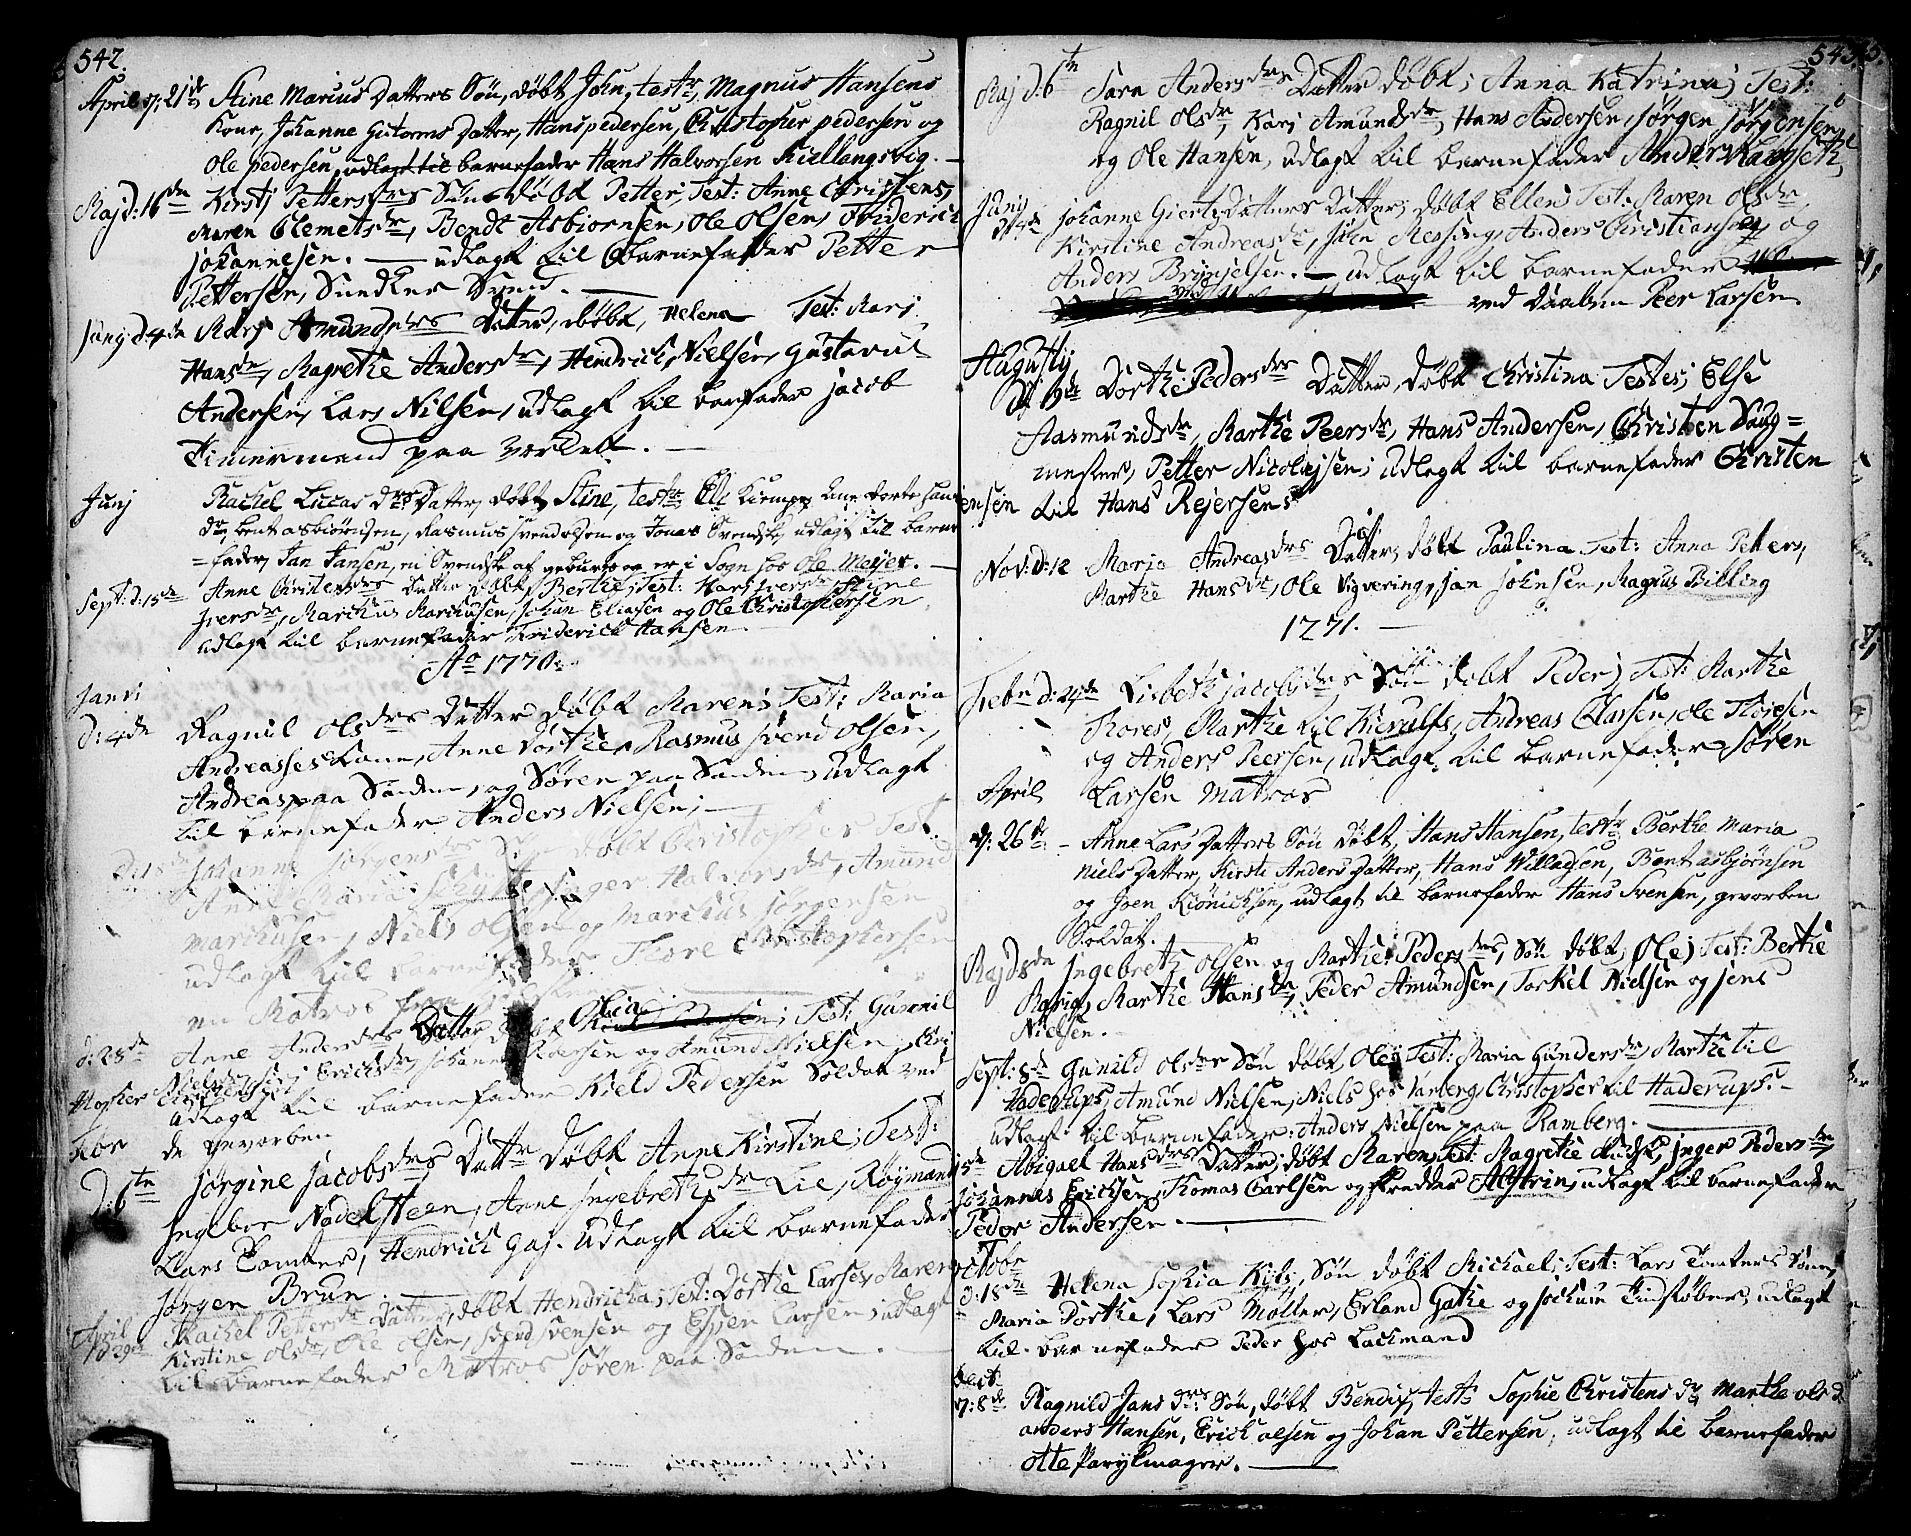 542.
April d: 21de Stine Marius Datters Søn, døbt John, testr Magnus Hansens
Kone, Johanne Gutorms Datter, Hans pedersen, Christopher pedersen og
Ole pedersen, udlagt til barnefader Hans Halvorsen Kiellangsvig.
Maj d: 16de Kirsti Pettersdrs Søn døbt Petter; Test: Anne Christens,
Maren Clemetsdr, Bendt Asbiornsen, Ole Olsen, Friderich
Johannesen. — udlagt til Barnefader Petter
Pettersen, Snedker Svend.
Junj d: 4de Marj Amundsdrs Datter, døbt, Helena Test: Marj
Hansdr, Magrethe Andersdr, Hendrich Nielsen, Gustavus
Andersen, Lars Nilsen, udlagt til barfader Jacob
Timermand paa Værket.
Junj Rachel Lucas Drs Datter, døbt Stine, testr Elle Kiempe Ane Dorte Hans
dr, bent asbiørnsen, Rasmus svendolsen og Jonas Svendske, udlagt til barne
=fader, Jan Jansen, en Svendske af geburt og er i Sogn hos Ole Meyer.
Sept: d: 15de Anne Christensdrs Datter døbt Berthe; Test: Mari Iversdr, Stine
Iversdr, Marchus Marchusen, Johan Eliasen og Ole Christophersen
udlagt til barnefader Friderich Hansen.
Ao 1770.
Janri
d: 4de Ragnil Olsdrs Datter døbt Maren; Test: Maria
Andreasses Kone, Anne Dorthe, Rasmus Svend Olsen,
Andreas paa Sanden, og Søren paa Sanden, udlagt
til barnefader Anders Nielsen;
d: 18de Johanne Jørgensdrs Søn døbt Christopher Test.
Anne Maria Inger Halvorsdr, Amund
Marchusen, Niels Olsen og Marchus Jørgensen
udlagt til barnefader Thore Christophersen
en Matros fra
d: 28de Anne Andersdrs Datter døbt Olia; Test: Gunnil
Nielsdr, Siri Erichsdr, Johannes Roersen og Amund Nielsen,
udlagt til barnefader Kield Pedersen Soldat ved
de gevorben
d: 6te Jørgine Jacobsdrs Dattr døbt Anne Kirstine; Test:
Ingebor Nodelsteen, Anne Ingebrethsdr Lie, Røymand
Lars Tomter, Hendrich Gaj. udlagt til barnefader
Jørgen Brun.
April
d 29de Rachel Pettersdr Datter, døbt Hendricha; Test: Dorthe Larses, Maren
Kirstine Olsdr, Ole Olsen, Svend Svensen og Espen Larsen; udlagt
til barnefader Matros Søren paa Sanden.
543.
Maj d: 6te Sara Andersdrs Datter døbt; Anna Katrina; Test:
Ragnil Olsdr, Karj Amundsdr, Hans Andersen, Jørgen Jørgensen
og Ole Hansen, udlagt til barnefader Anders
Junj
d: 4de Johanne Giertz Datters Datter, døbt Ellen; Test: Maren Olsdr,
Kirstine Andreasdr, John Messing, Anders Christiansen, og
Anders Brynjelsen. — udlagt til barnefader
ved Daaben Peer Larsen.
Augustij
d: 19de Dorthe Pedersdrs Datter, døbt Christina Testes; Else
Aasmundsdr, Marthe Peersdr, Hans Andersen, Christen Saug=
mester, Petter Nicolajsen; udlagt til barnefader Christen
til Hans Rejersens
Nov: d: 12 Maria Andreasdrs Datter, døbt Paulina Test: Anna Petters,
Marthe Hansdr, Ole Vigvering, Jan Johnsen, Magnus Billing
1771.
Febr d: 24de Lisbeth Jacobsdrs Søn døbt Peder; Test: Marthe
Thores, Marthe til Kierulfs, Andreas Clarsen, Ole Thoresen
og Anders Peersen, udlagt til barnefader Søren
Larsen Matros
April
d: 26de Anne Lars Datters Søn døbt, Hans Hansen, testr Berthe Maria
Niels Datter, Kirsti Anders Datter, Hans Willadsen, Bent asbjørnsen
og Joen Kiønichsen, udlagt til barnefader Hans Svensen, gevorben
Soldat.
Maj d 8de Ingebreth Olsen og Marthe Pedersdrs, Søn døbt; Ole; Test: Berthe
Maria, Marthe Hansdr, Peder Amundsen, Torkel Nielsen og Jens
Nielsen.
Sept: 8de Gunild Olsdrs Søn døbt Ole; Test: Maria Gundersdr, Marthe til
Haderups, Amund Nielsen, Niels hos Varberg, Christopher til Haderups.
udlagt til barnefader: Anders Nielsen paa Ramberg.
15de Abigael Hansdrs Datter; døbt Maren; Test: Magrethe Lund, Inger Pedersdr
Johannes Erichsen, Thomas Carlsen og Skredder Alstrin, udlagt til barnefader
Peder Andersen.
Octobr
d: 18de Helena Sophia Kyhs, Søn døbt Michael; Test: Lars Tomters Kone,
Maria Dorthe, Lars Møller, Erland Gathe og Jochum Tindstøber, udlagt
til barnefader Peder hos Lachmand
Dect:
d: 8de Ragnild Jans Drs Søn, døbt Bendix, testr Sophie Christens dr, Marthe ols dr
anders Hansen, Erich olsen og Johan Pettersen, udlagt til barnefader
otte Parykmager.